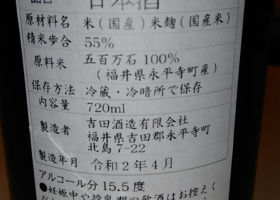 品目 日本酒
原材料名 米(国産)米麹(国産米)
精米歩合 55%
原料米 五百万石100%
(福井県永平寺町産)
保存方法 冷蔵・冷暗所で保存
内容量 720ml
製造者 吉田酒造有限会社
福井県吉田郡永平寺町
北島7-22
製造年月 令和2年4月
アルコール分 15.5度
●妊娠中や授乳期の飲酒はお控えく